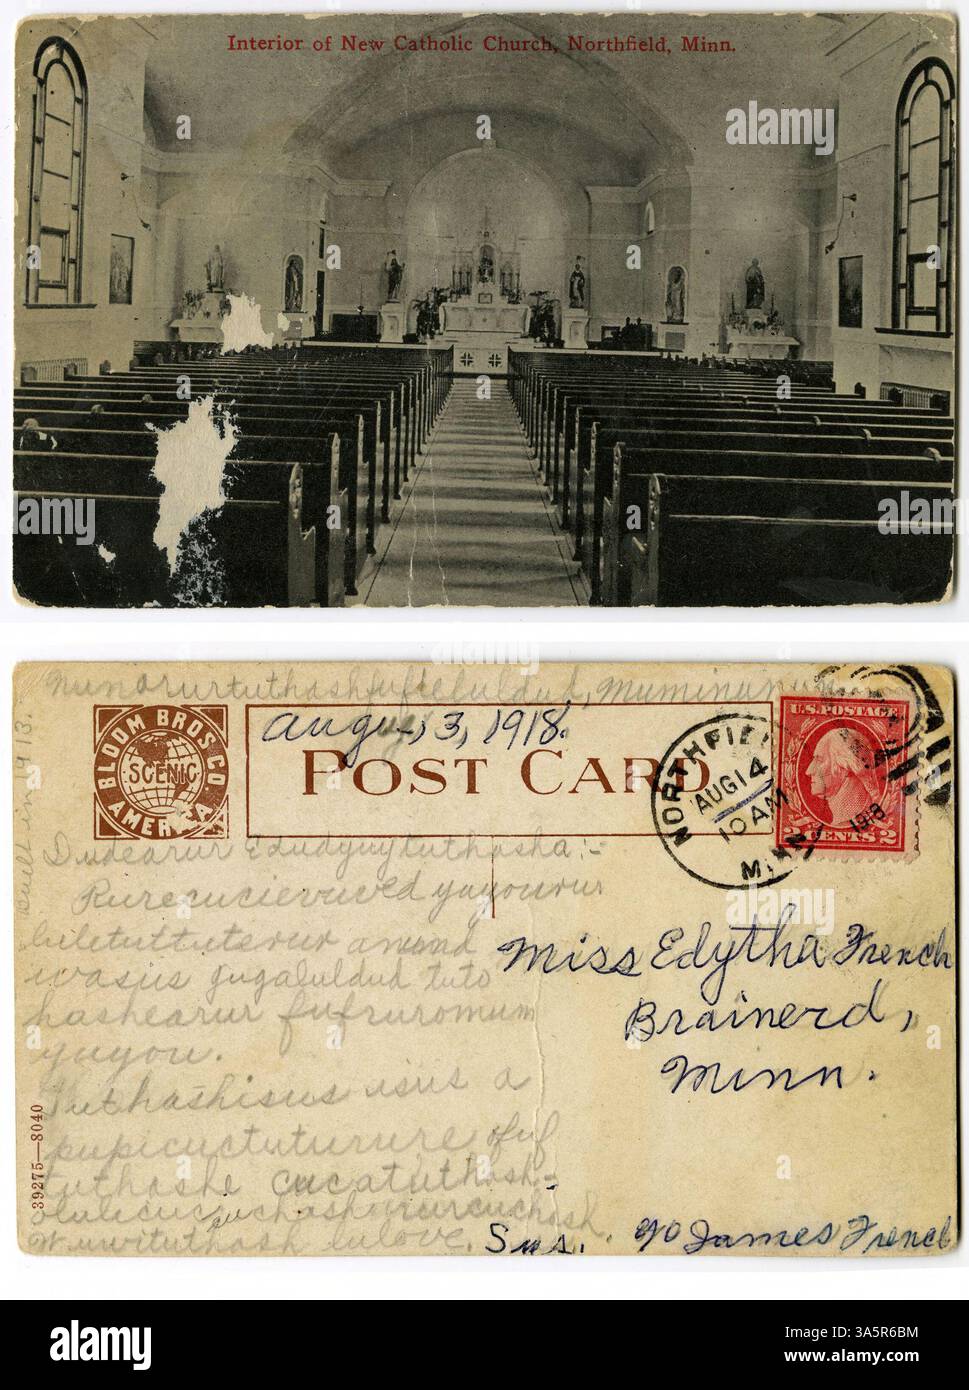 Interior of New Catholic Church, Northfield, Minn.
Built in 1913.
BLOOM BROS. CO
SCENIC
AMERICA
Aug, 13, 1918.
POST CARD
NORTHFIELD
AUG 14
10 AM
MINN.
1918
U.S. POSTAGE
2 CENTS 2
Dudearur Edudyuytuthasha:-
Rurecucievuved yuyourur
liletuttuterur anund
wasus gugaluldud tuto
hashearur fufruromum
yuyou.
Tuthashisus isus a
pupicuctuturure ofuf
tuthashe cucatuthash-
olulicuc chushasurурcuchash
Wuwituthash lulove.
Sus.
Miss Edytha French
Brainerd,
Minn.
c/o James French
39275—8040
alamy
Image ID: 3A5R6BM
www.alamy.com